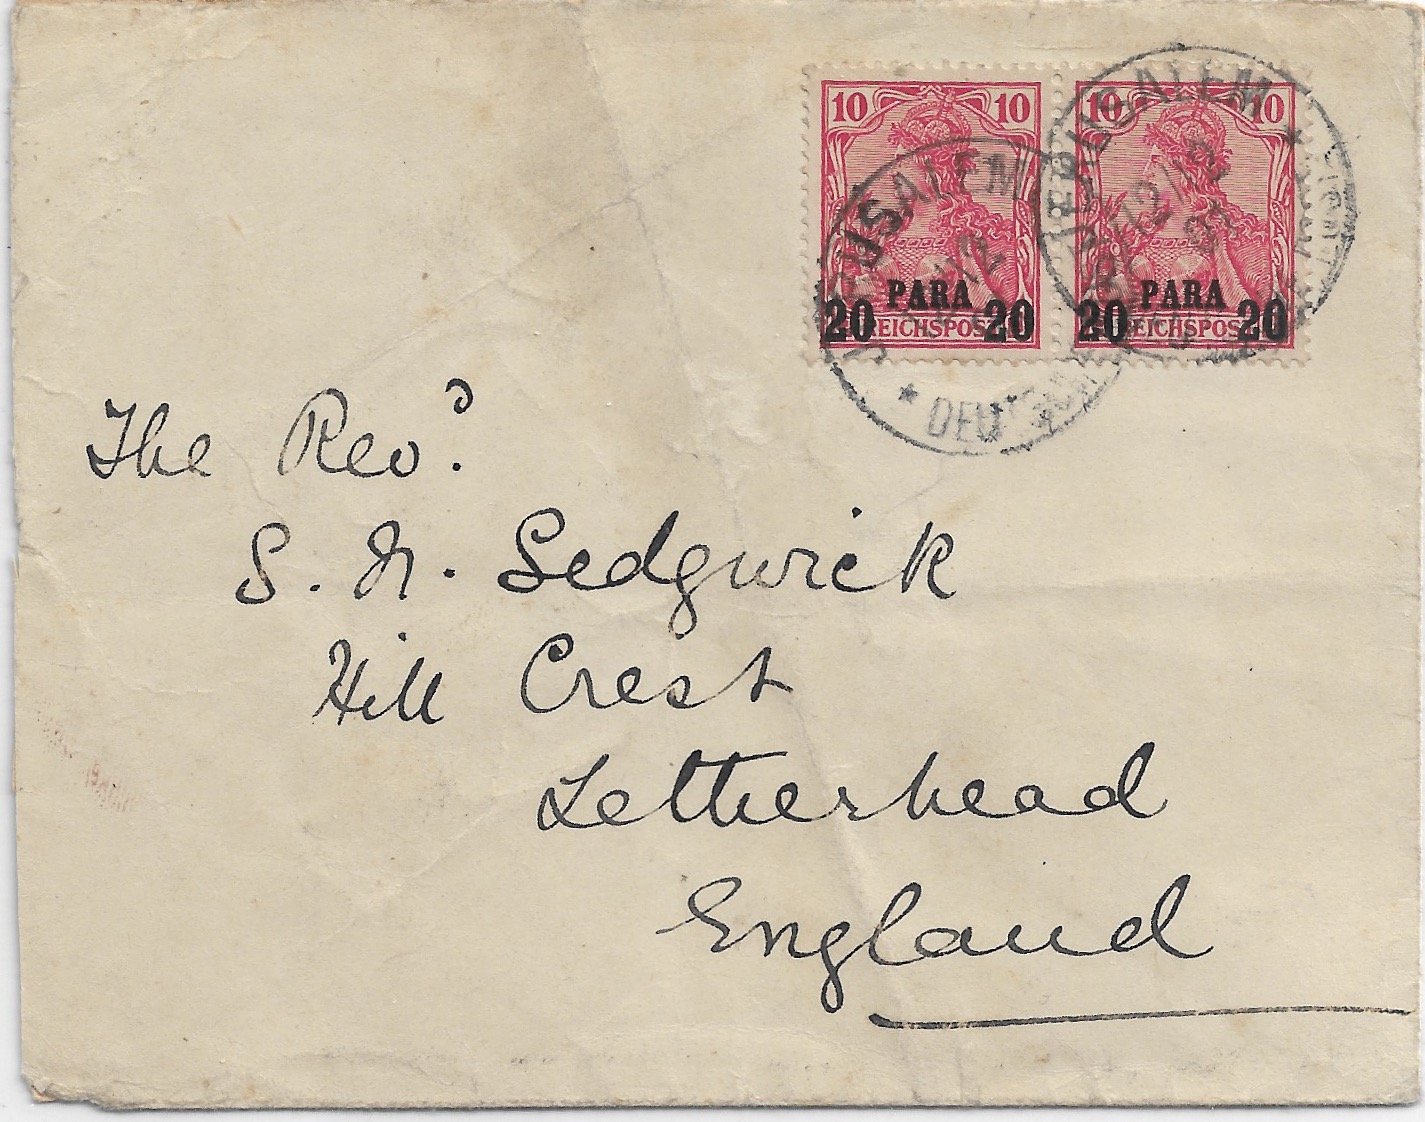 10 10 10 10
JERUSALEM JERUSALEM
PARA PARA
20 20 20 20
REICHSPOST REICHSPOST
* DEUTSCHE
The Revd.
S. N. Sedgwick
Hill Crest
Letherhead
England